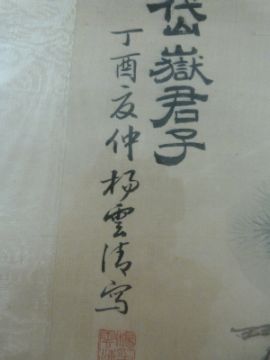 岱嶽君子
丁酉夏仲楊雲清寫